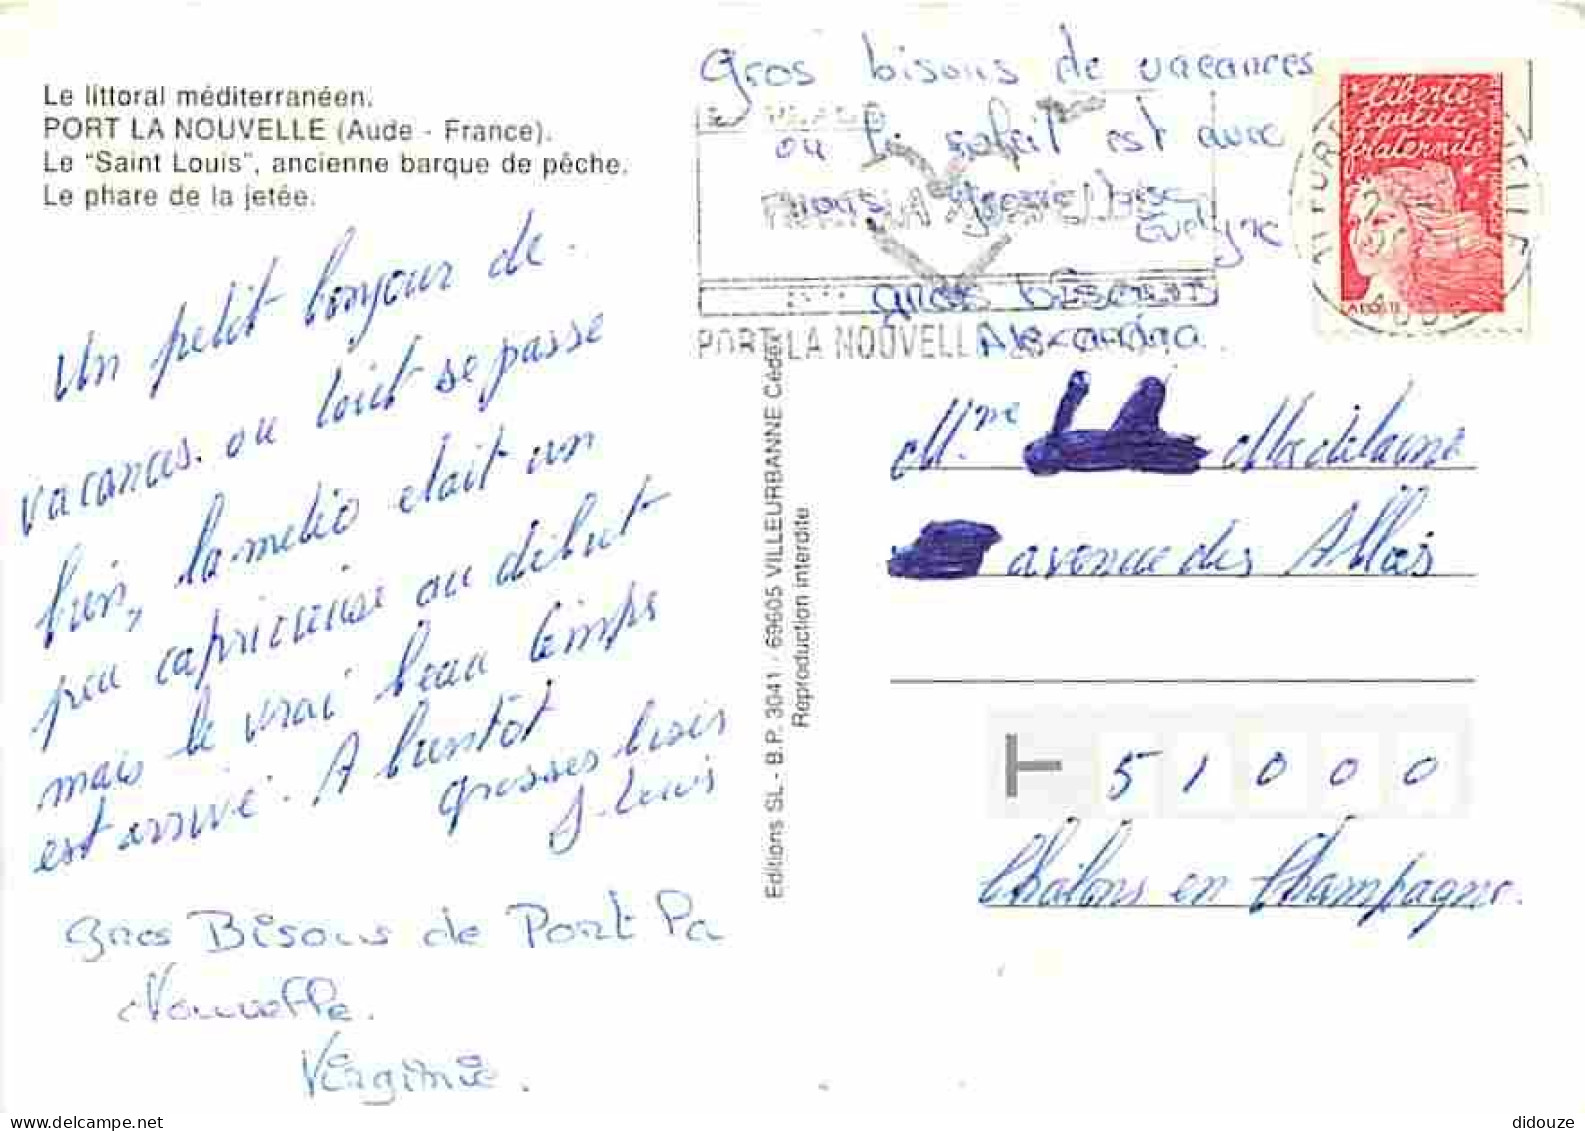 Le littoral méditerranéen.
PORT LA NOUVELLE (Aude - France).
Le "Saint Louis", ancienne barque de pêche.
Le phare de la jetée.
Un petit bonjour de
vacances. ou tout se passe
bien, la météo etait un
peu capricieuse au début
mais le vrai beau temps
est arrivé. A bientôt
grosses bises
J-Louis
Gros Bisous de Port La
Nouvelle.
Virginie.
Gros bisous de vacances
ou le soleil est avec
nous
Evelyne
gros bisous
Alexandra.
PORT LA NOUVELLE
Liberté
égalité
fraternité
Editions SL - B.P. 3041 / 69605 VILLEURBANNE Cédex
Reproduction interdite
Mme Madelaine
avenue des Alliés
51000
Châlons en Champagne.
didouze